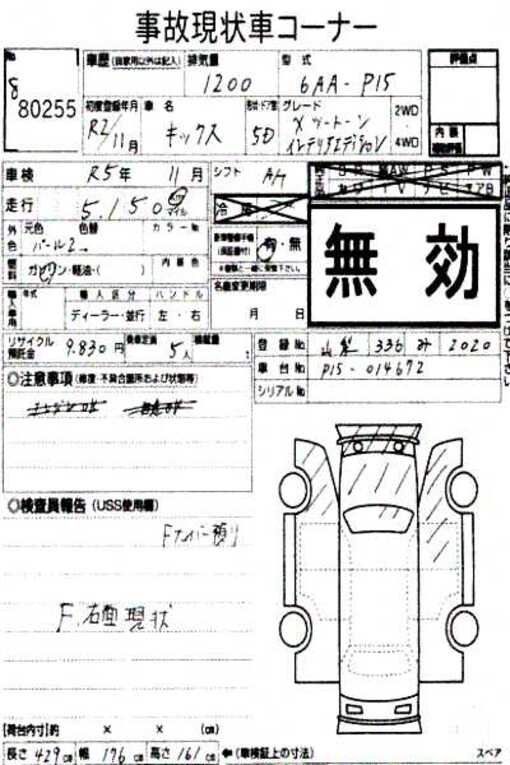 事故現状車コーナー
No 8 80255
車歴 (自家用以外は記入) 排気量 型式 評価点
1200 6AA-P15
初度登録年月 車名 形状・ドア数 グレード 2WD
R2/11月 キックス 5D Xツートーン インテリアエディション 4WD
内装
車検 R5年 11月 シフト AA
走行 5,150 マイル
外色 元色 色替 カラーNo
パール2 有・無
燃料 ガソリン・軽油・( ) 内装色
輸入車用 年式 輸入区分 ハンドル 名義変更期限
ディーラー・並行 左・右 月 日
無効
リサイクル預託金 9,830円 乗車定員 5人 積載量 t
登録No 山梨 336 み 2020
車台No P15-014672
シリアルNo
◎注意事項 (修復・不具合箇所および状態等)
◎検査員報告 (USS使用欄)
Fナンバー預り
F.右面現状
[荷台内寸]約 × × (cm)
長さ 429cm 幅 176cm 高さ 161cm ←(車検証上の寸法) スペア